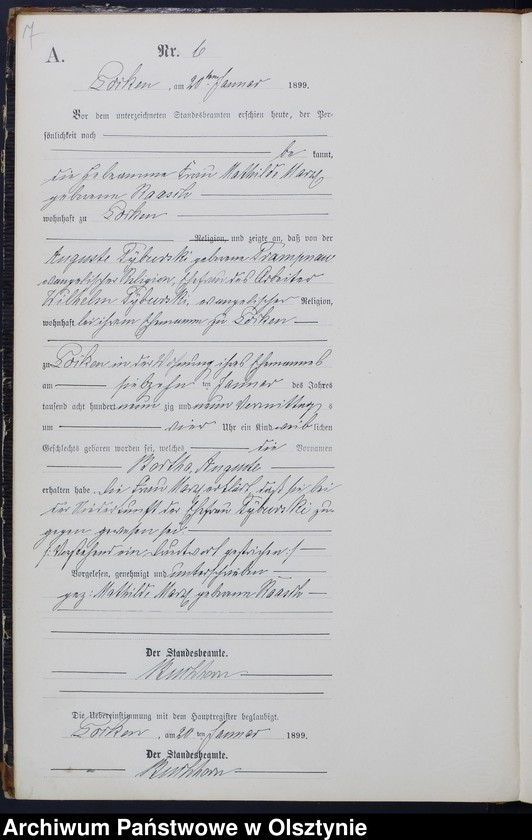 7
A.
Nr. 6
Lörken, am 20ten Januar 1899.
Vor dem unterzeichneten Standesbeamten erschien heute, der Per-
sönlichkeit nach
be kannt,
die Hebeamme Frau Mathilde Marx
geborene Raasch
wohnhaft zu Lörken
Religion, und zeigte an, daß von der
Auguste Tyburski geborene Trampnau
evangelischer Religion, Ehefrau des Arbeiter
Wilhelm Tyburski, evangelischer Religion,
wohnhaft bei ihrem Ehemanne zu Lörken
zu Lörken in der Wohnung ihres Ehemannes
am siebzehn ten Januar des Jahres
tausend acht hundert neun zig und neun Vormittag s
um vier Uhr ein Kind weib lichen
Geschlechts geboren worden sei, welches die Vornamen
Bertha, Auguste
erhalten habe. Die Frau Marx erklärt, daß sie bei
der Niederkunft der Ehefrau Tyburski zu-
gegen gewesen sei.
/: Vorstehend ein Druckwort gestrichen :/
Vorgelesen, genehmigt und unterschrieben
gez: Mathilde Marx geborene Raasch
Der Standesbeamte.
Die Uebereinstimmung mit dem Hauptregister beglaubigt.
Lörken, am 20 ten Januar 1899.
Der Standesbeamte.
Archiwum Państwowe w Olsztynie